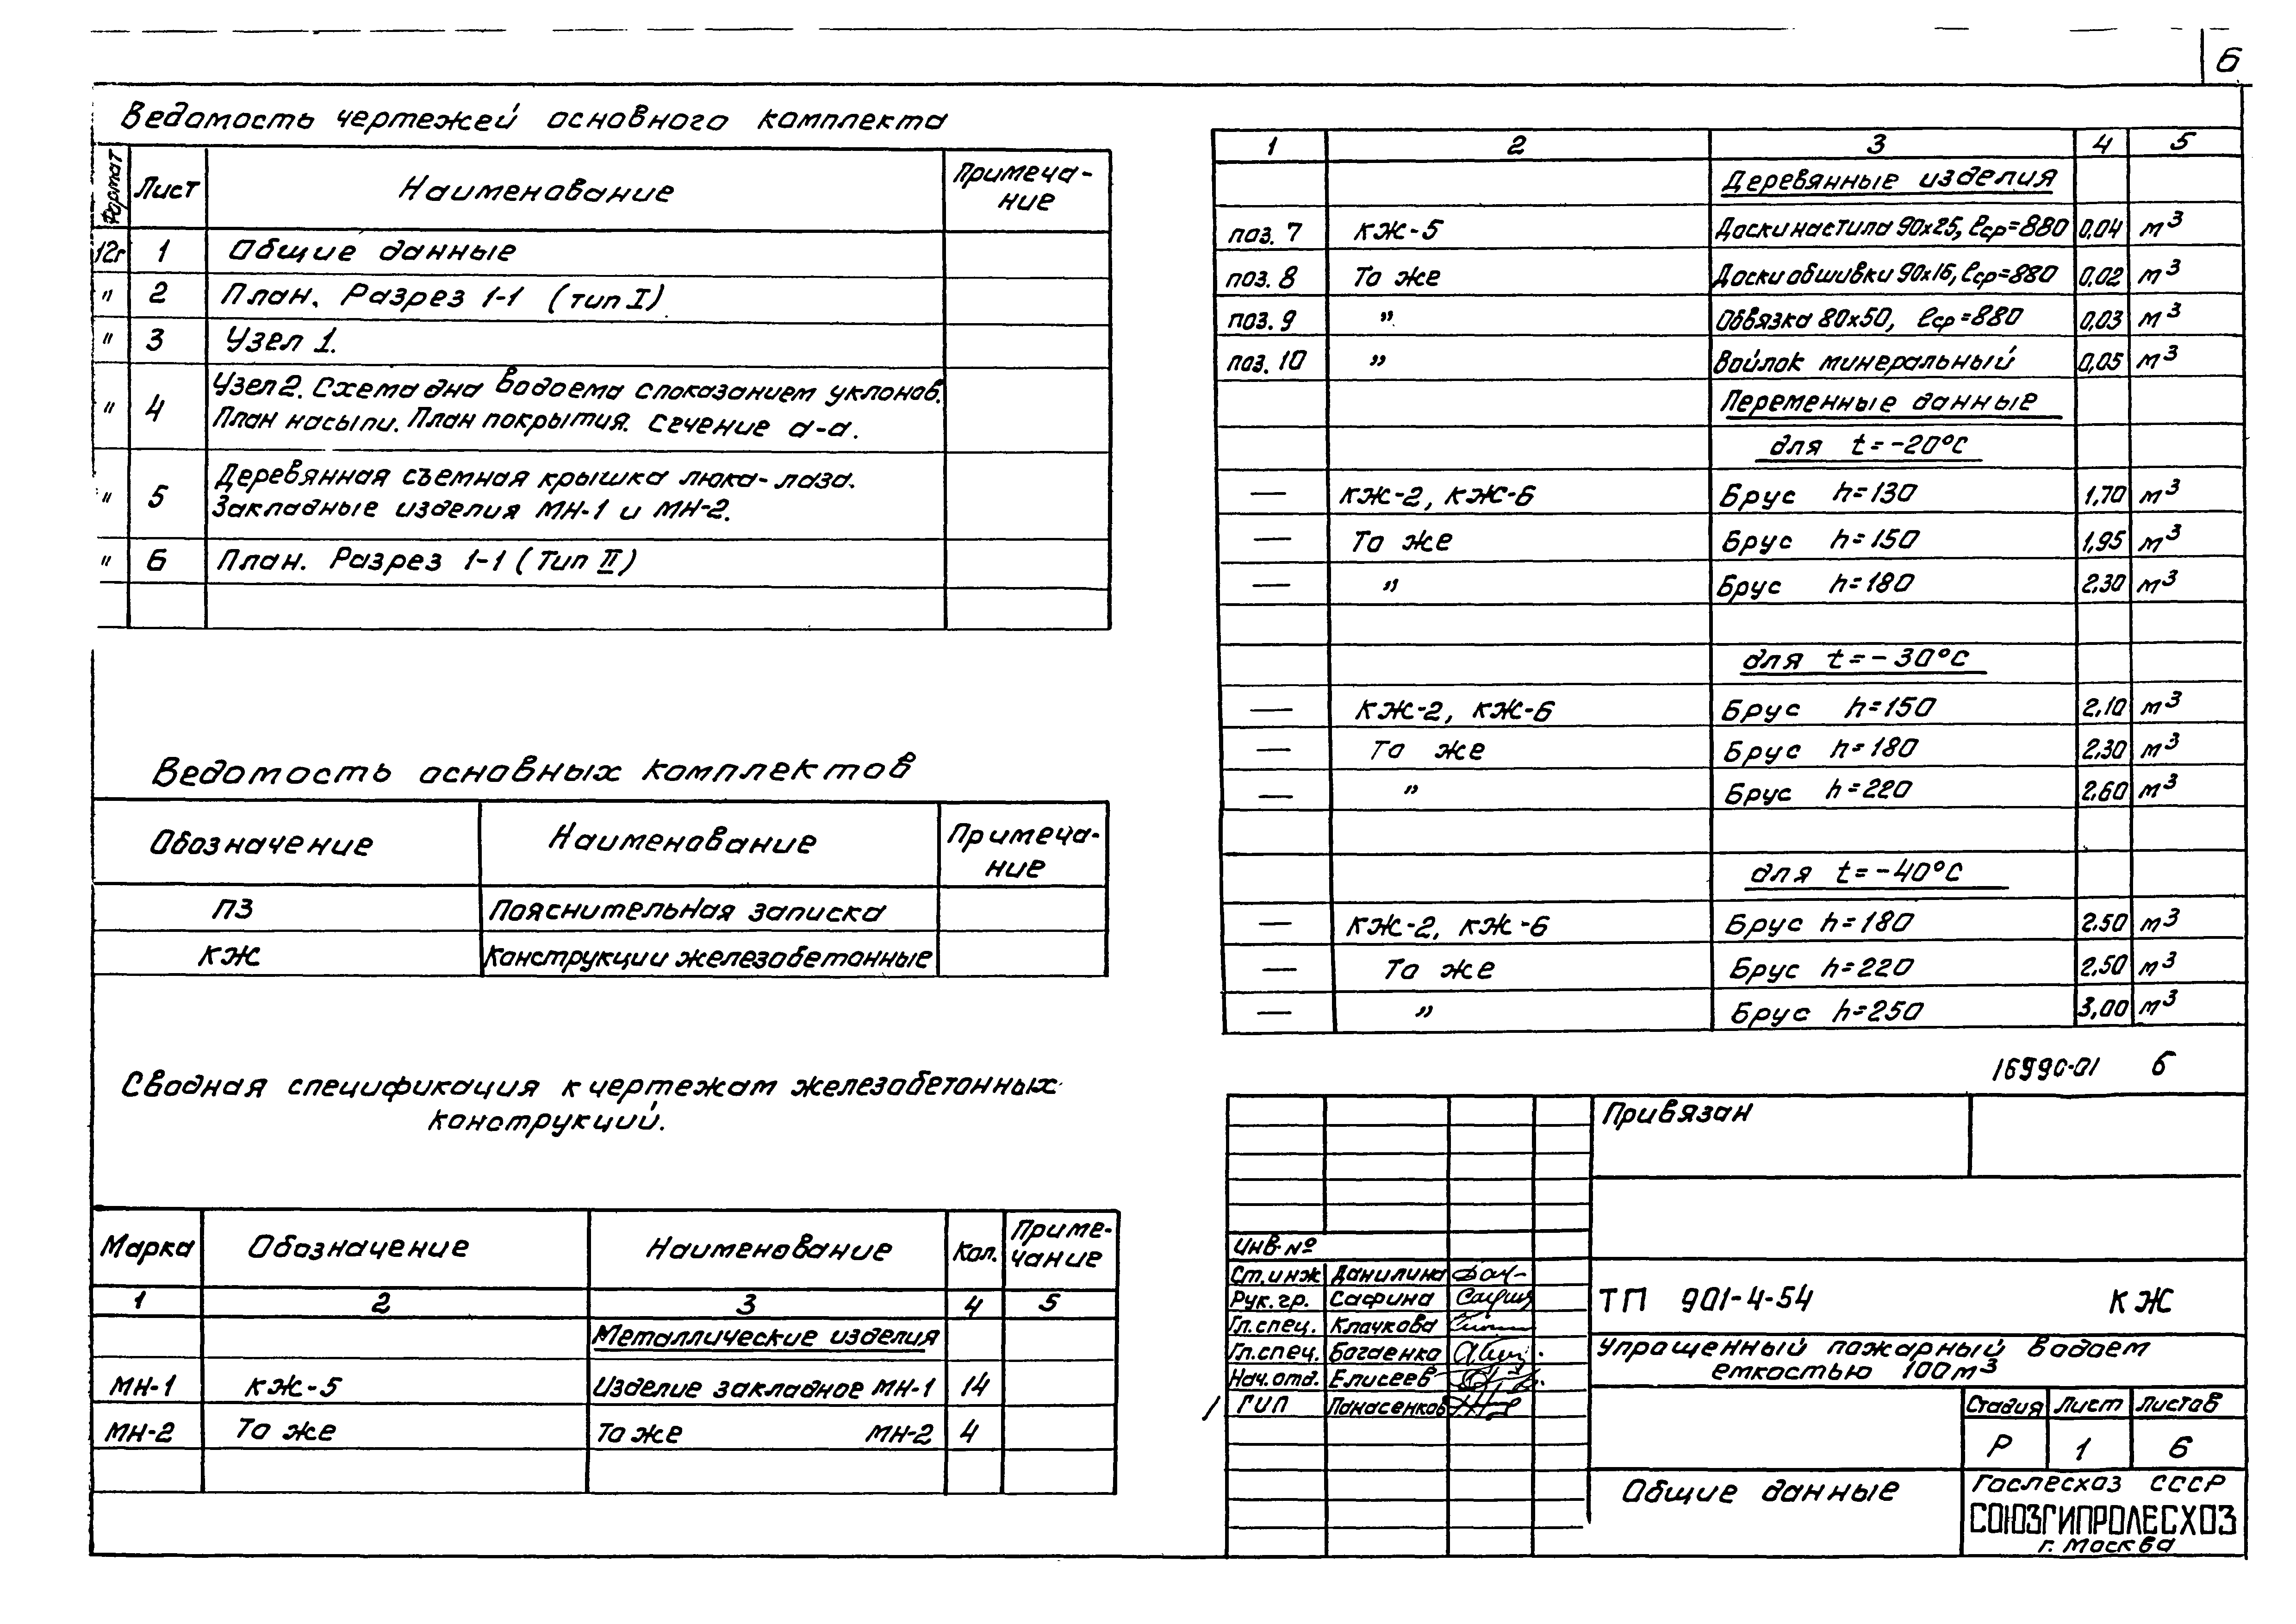 6
Ведомость чертежей основного комплекта
Формат Лист Наименование Примеча-
ние
12г 1 Общие данные
" 2 План. Разрез 1-1 (тип I)
" 3 Узел 1.
" 4 Узел 2. Схема дна водоема с показанием уклонов.
План насыпи. План покрытия. Сечение а-а.
" 5 Деревянная съемная крышка люка-лаза.
Закладные изделия МН-1 и МН-2.
" 6 План. Разрез 1-1 (Тип II)
Ведомость основных комплектов
Обозначение Наименование Примеча-
ние
ПЗ Пояснительная записка
КЖ Конструкции железобетонные
Сводная спецификация к чертежам железобетонных
конструкций.
Марка Обозначение Наименование Кол. Приме-
чание
1 2 3 4 5
Металлические изделия
МН-1 КЖ-5 Изделие закладное МН-1 14
МН-2 То же То же МН-2 4
1 2 3 4 5
Деревянные изделия
поз. 7 КЖ-5 Доски настила 90х25, ℓср=880 0,04 м³
поз. 8 То же Доски обшивки 90х16, ℓср=880 0,02 м³
поз. 9 " Обвязка 80х50, ℓср=880 0,03 м³
поз. 10 " Войлок минеральный 0,05 м³
Переменные данные
для t=-20°С
— КЖ-2, КЖ-6 Брус h=130 1,70 м³
— То же Брус h=150 1,95 м³
— " Брус h=180 2,30 м³
для t=-30°С
— КЖ-2, КЖ-6 Брус h=150 2,10 м³
— То же Брус h=180 2,30 м³
— " Брус h=220 2,60 м³
для t=-40°С
— КЖ-2, КЖ-6 Брус h=180 2,50 м³
— То же Брус h=220 2,50 м³
— " Брус h=250 3,00 м³
16990-01 6
Привязан
Инв №
Ст. инж Данилина
Рук. гр. Сафина
Гл. спец. Клачкова
Гл. спец. Богаенко
Нач. отд. Елисеев
ГИП Панасенков
ТП 901-4-54 КЖ
Упрощенный пожарный водоем
емкостью 100м³
Стадия Лист Листов
Р 1 6
Общие данные
Гослесхоз СССР
СОЮЗГИПРОЛЕСХОЗ
г. Москва